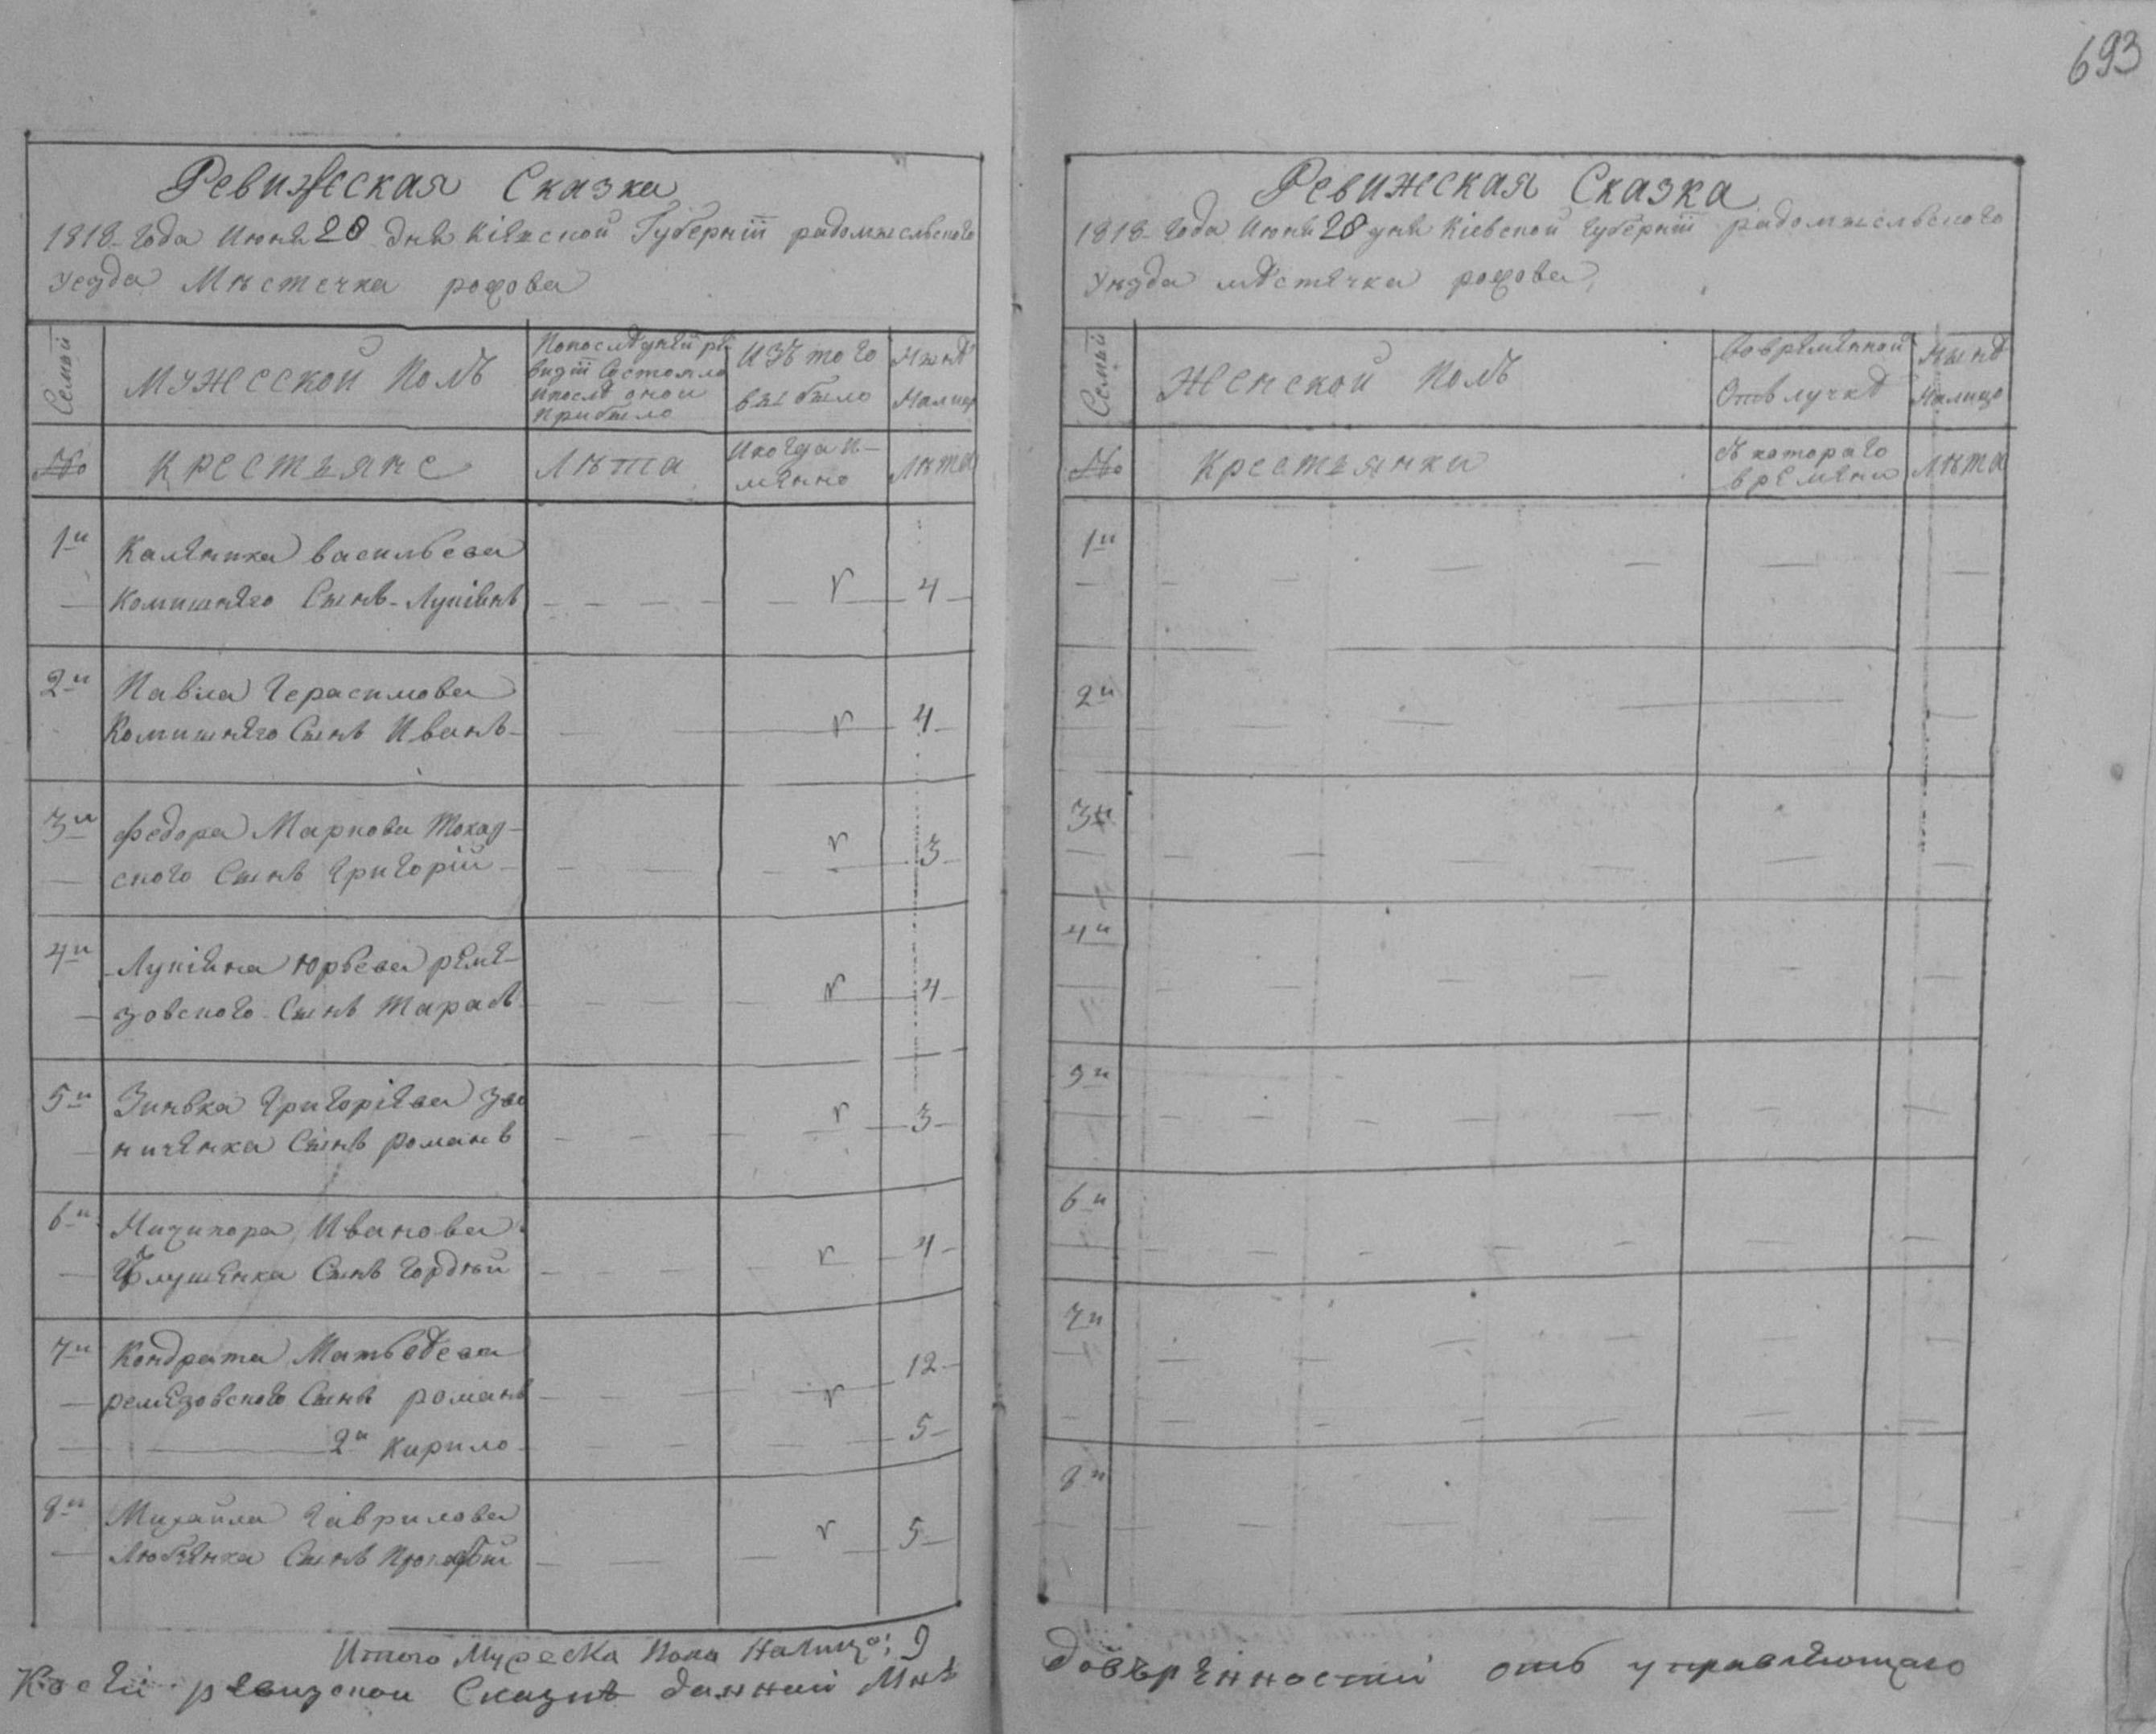 693
Ревижская Сказка
1818 года Июня 20 дня Кіевской Губерніи радомысльского
уезда Мѣстечка рофова
Семьи
Мужеской Полъ
Попослѣдней ре
визіи Состояло
ипослѣ оной
прибыло
Изъ того
выбыло
Нынѣ
Налицо
№
Крестьяне
Лѣта
Икогда и-
мянно
Лѣта
1й Калѣника васильева
Комишнего Сынъ Лукіянъ 4
2й Павла Герасимова
Комишнего Сынъ Иванъ 4
3й федора Маркова Токар-
ского Сынъ Григорій 3
4й Лукіяна Юрьева реме-
зовского Сынъ Тарасъ 4
5й Зинька Григоріева Зво
ниченка Сынъ романъ 3
6й Ничипора Иванова
Глушенка Сынъ Гордѣй 4
7й Кондрата Матвѣева
ремезовского Сынъ романъ 12
2й Кирило 5
8й Михайла Гаврилова
Любченка Сынъ 5
Итого Мужеска Пола Налицо: 9
К сей ревизской Сказкѣ данной Мнѣ
Ревижская Сказка
1818 года Июня 20 дня Кіевской Губерніи радомысльского
уезда мѣстечка рофова
Семьи
Женской Полъ
Вовременной
Отълучкѣ
Нынѣ
Налицо
№
Крестьянки
Съ котораго
времени
Лѣта
1й
2й
3й
4й
5й
6й
7й
8й
Довѣренности отъ управляющаго